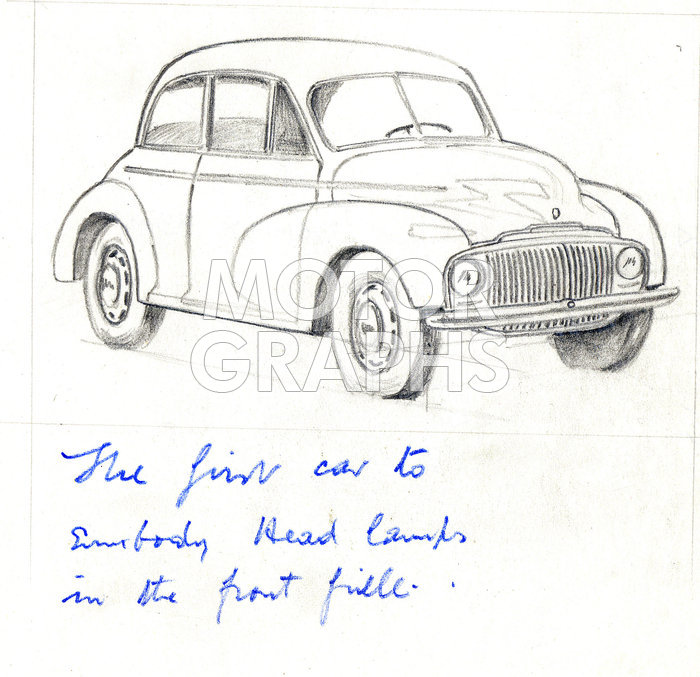 MOTOR
GRAPHS
The first car to
Embody Head lamps
in the front grille.